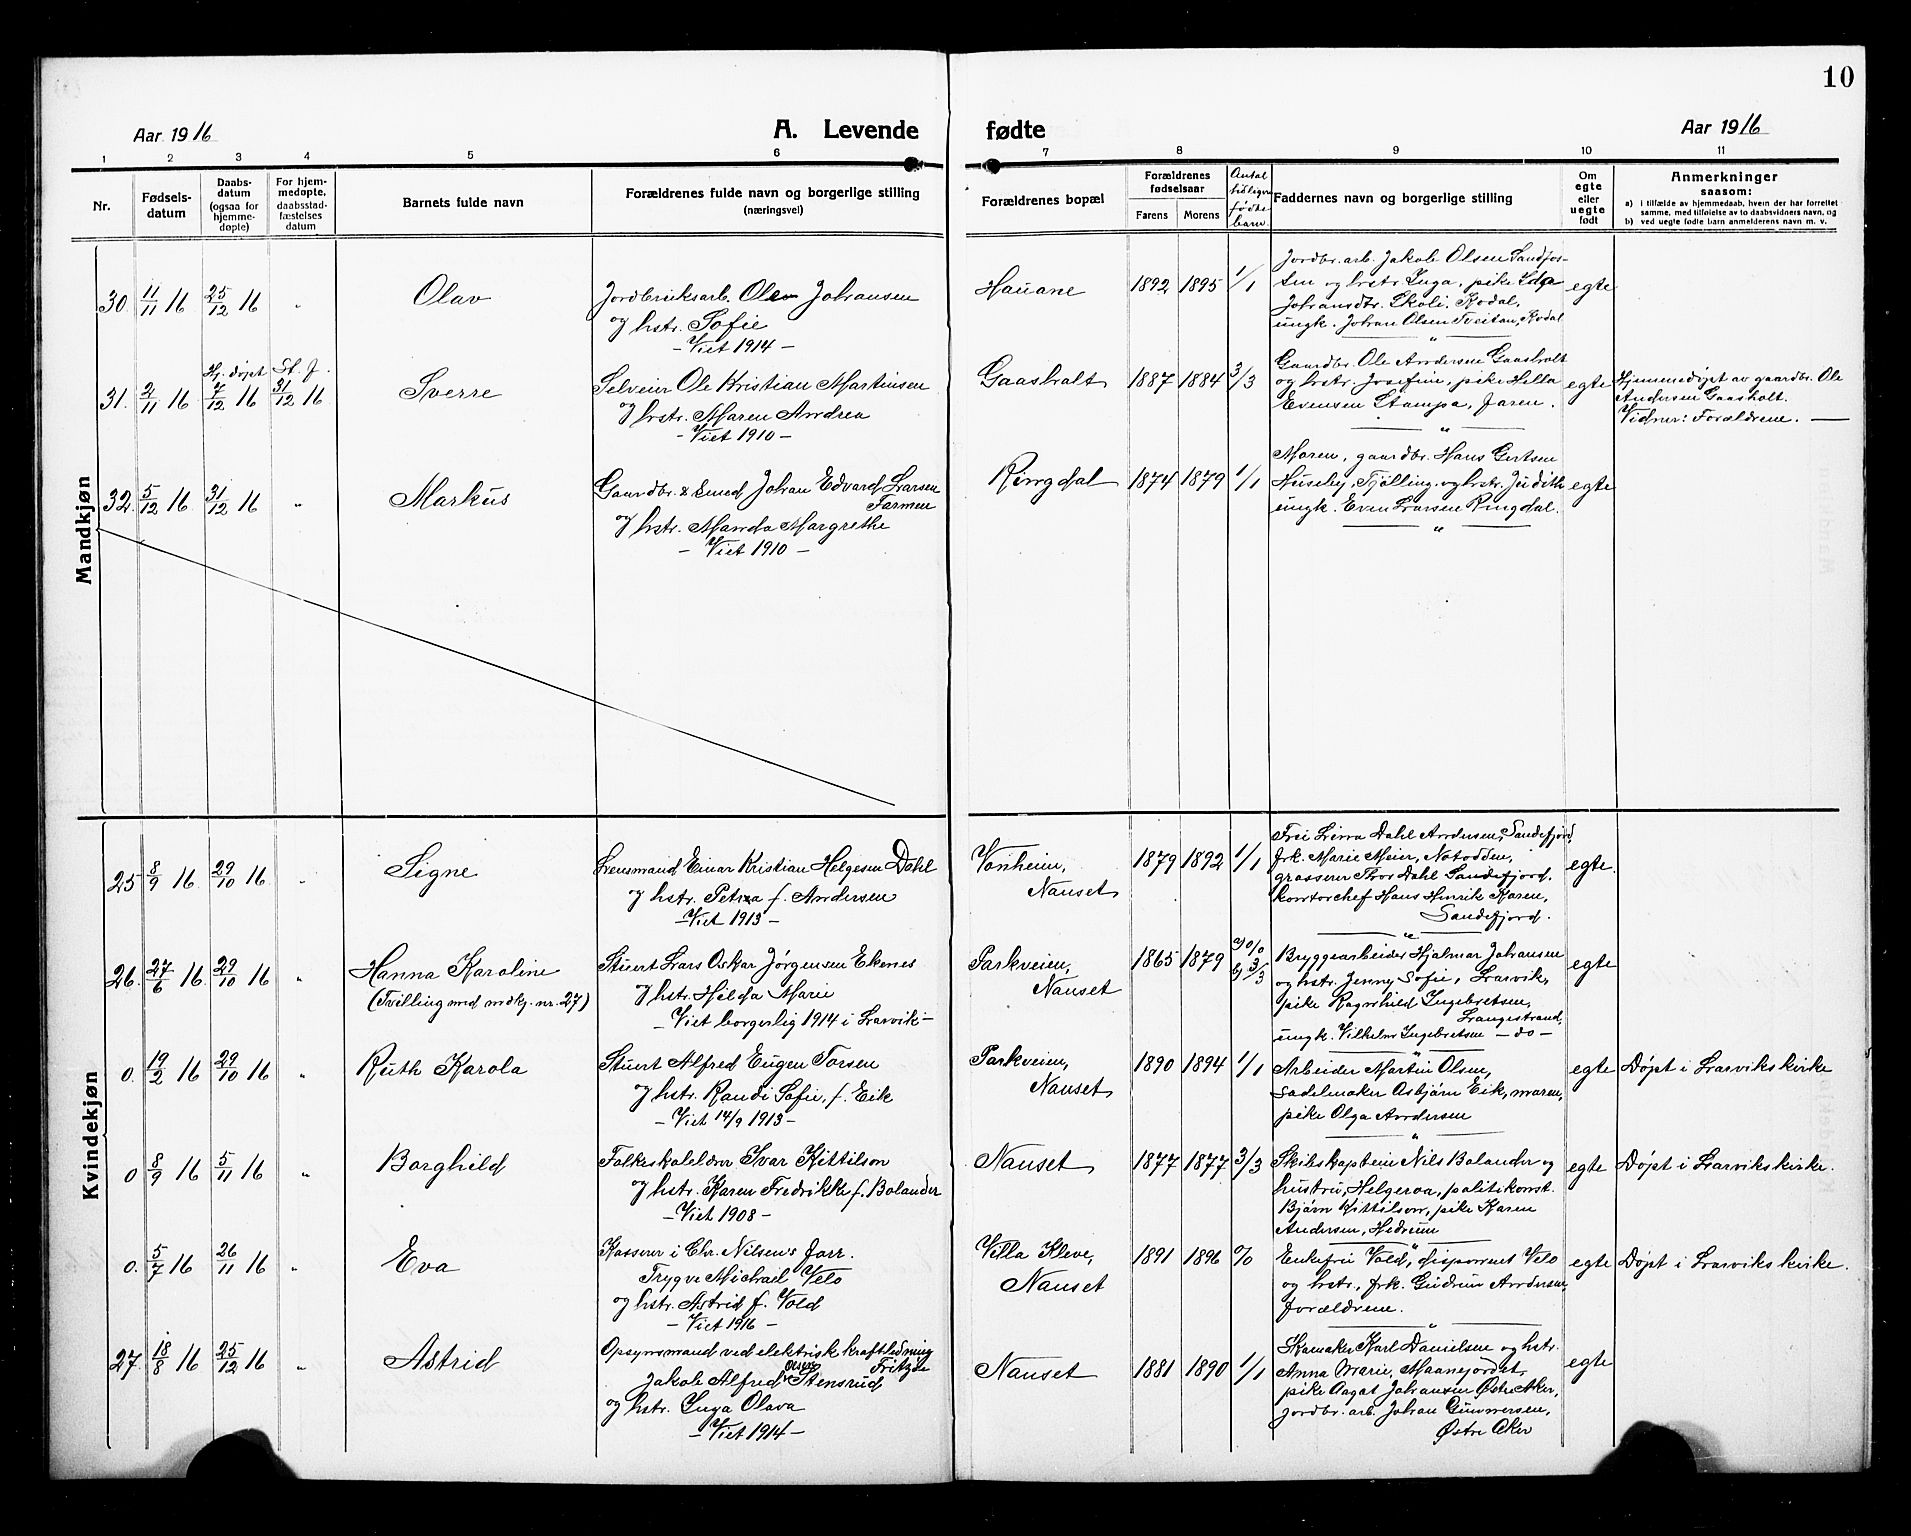 10
Aar 1916
A. Levende fødte
Aar 1916
1 2 3 4 5 6 7 8 9 10 11
Nr.
Fødsels-
datum
Daabs-
datum
(ogsaa for
hjemme-
døpte)
For hjem-
medøpte,
daabsstad-
fæstelses
datum
Barnets fulde navn
Forældrenes fulde navn og borgerlige stilling
(næringsvei)
Forældrenes bopæl
Forældrenes
fødselsaar
Farens Morens
Antal
tidligere
fødte
barn
Faddernes navn og borgerlige stilling
Om
egte
eller
uegte
født
Anmerkninger
saasom:
a) i tilfælde av hjemmedaab, hvem der har forrettet
samme, med tilføielse av to daabsvidners navn, og
b) ved uegte fødte barn anmelderens navn m. v.
Mandkjøn
30. 11/11 16 25/12 16 „ Olav
Jordbruksarb. Olav Johansen
og hstr. Sofie
- Viet 1914 -
Hauane 1892 1895 1/1
Jordbr. arb. Jakob Olsen
og hstr. Inga, pike
Johansdtr. Skoli, Kodal,
ungk. Johan Olsen Tveitan, Kodal
egte
31. 2/11 16 Hj. døpt 7/12 16 St. f. 31/12 16 Sverre
Selveier Ole Kristian Martinsen
og hstr. Maren Andrea
- Viet 1910 -
Gaasholt 1887 1884 3/3
Gaardbr. Ole Andersen Gaasholt
og hstr. Josefine, pike Hilla
Evensen Stampa, Jaren.
egte
Hjemmedøpt av gaardbr. Ole
Andersen Gaasholt.
Vidner: Forældrene. —
32. 5/12 16 31/12 16 „ Markus
Gaardbr. & smed Johan Edvard Larsen
Farmen
og hstr. Manda Margrethe
- Viet 1910 -
Ringdal 1874 1879 1/1
Moren, gaardbr. Hans Gertsen
Huseby, Tjølling og hstr. Judith
ungk. Even Larsen Ringdal.
egte
Kvindekjøn
25 8/9 16 29/10 16 „ Signe
Lensmand Einar Kristian Helgesen Dahl
og hstr. Petra f. Andersen
- Viet 1913 -
Vonheim,
Nanset
1879 1892 1/1
Fru Dahl Andersen, Sandefjord,
frk. Marie Meier, Notodden,
grosserer Thor Dahl Sandefjord.
kontorchef Hans Henrik Karen,
Sandefjord.
egte.
26. 27/6 16 29/10 16 „ Hanna Karoline
(Tvilling med mdkj. nr. 27)
Stuert Lars Oskar Jørgensen Ekenes
og hstr. Hilda Marie
- Viet borgerlig 1914 i Larvik -
Parkveien,
Nanset
1865 1879
3/3
Bryggearbeider Hjalmar Johansen
og hstr. Jenny Sofie, Larvik,
pike Ragnhild Ingebretsen,
Langestrand,
ungk. Vilhelm Ingebretsen — do —
egte
0. 19/2 16 29/10 16 „ Ruth Karola
Stuert Alfred Eugen Torsen
og hstr. Randi Sofie, f. Eik
- Viet 14/9 1913 -
Parkveien,
Nanset
1890 1894 1/1
Arbeider Martin Olsen,
Sadelmaker Asbjørn Eik, moren,
pike Olga Andersen
egte Døpt i Larviks kirke
0 8/9 16 5/11 16 „ Borghild
Folkeskolelærer Ivar Kittilson
og hstr. Karen Fredrikke f. Bolander
- Viet 1908 -
Nanset 1877 1877 3/3
Skibskaptein Nils Bolander og
hustru, Helgeroa, politikonst.
Bjørn Kittilson, pike Karen
Andersen, Hedrum
egte Døpt i Larviks kirke.
0. 5/7 16 26/11 16 „ Eva
Kasserer i Chr. Nilsen's forr.
Trygve Michael Velo
og hstr. Astrid f. Vold
- Viet 1916 -
Villa Kleve,
Nanset
1891 1896 0/0
Enkefru Vold, disponent Velo
og hstr., frk. Gudrun Andersen,
forældrene.
egte Døpt i Larviks kirke.
27. 18/8 16 25/12 16 „ Astrid
Opsynsmand ved elektrisk kraftledning
Fritzøe
Jakob Alfred Olsen Stensrud
og hstr. Inga Olava
- Viet 1914 -
Nanset 1881 1890 1/1
Skomaker Karl Danielsen og hstr.
Anna Marie, Maanejordet,
pike Aagot Johansen Østre Aker,
Jordbr. arb. Johan Gunnersen,
Østre Aker
egte